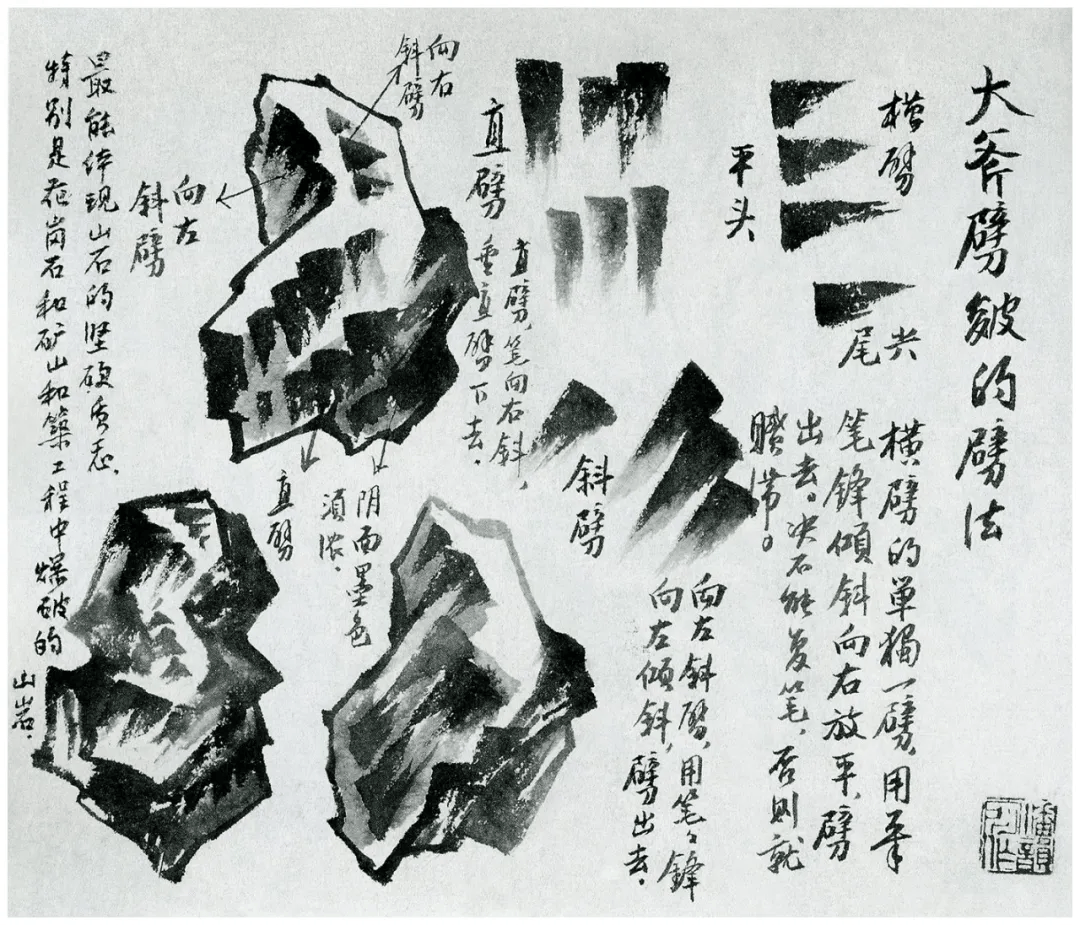 大斧劈皴的劈法
横劈
平头
尖
尾
横劈的單獨一劈、用
笔锋倾斜向右放平、劈
出去。决不能复笔，否则就
滞。
直劈
直劈，笔向右斜，
垂直劈下去，
斜劈
向左斜劈、用笔々锋
向左倾斜，劈出去，
向右
斜劈
向左
斜劈
直劈
阴面墨色
须浓，
最能体现山石的坚硬质态、
特别是花岗石和矿山和築工程中爆破的
山岩，